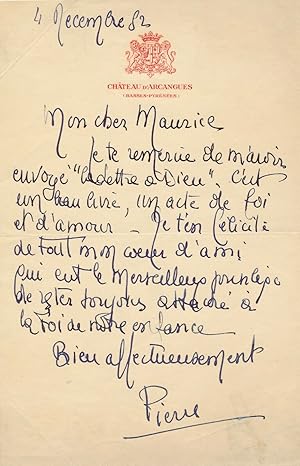 4 Decembre 82
CHÂTEAU D'ARCANGUES
(BASSES-PYRÉNÉES)
Mon cher Maurice
Je te remercie de m'avoir
envoyé "la lettre à Dieu". C'est
un beau livre, un acte de foi
et d'amour - Je t'en félicite
de tout mon coeur d'ami
qui eut le merveilleux privilège
de rester toujours attaché à
la foi de notre enfance
Bien affectueusement
Pierre